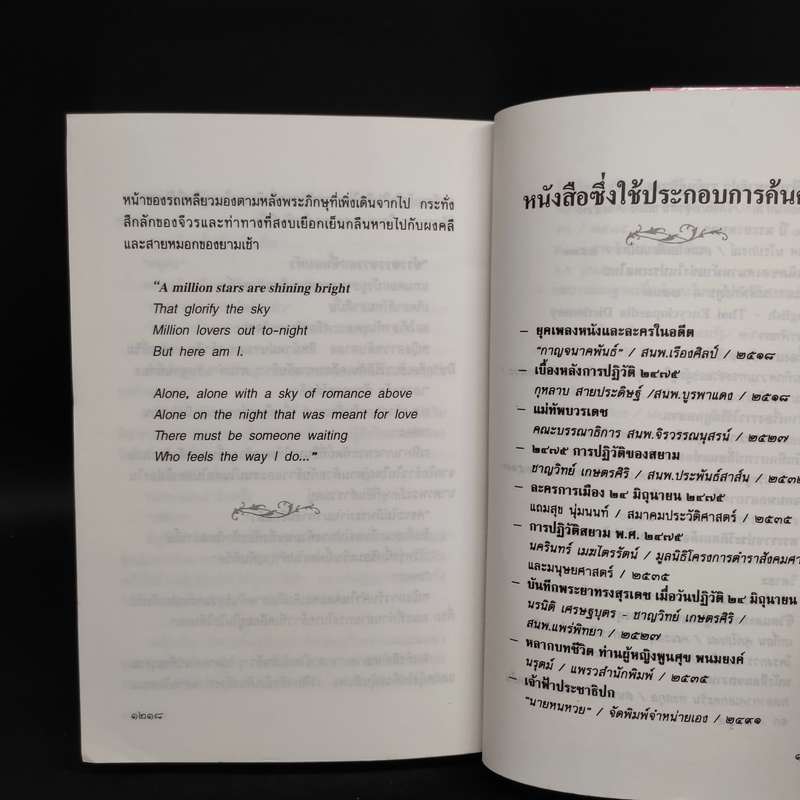 หน้าของรถเหลียวมองตามหลังพระภิกษุที่เพิ่งเดินจากไป กระทั่ง
สีกลักของจีวรและท่าทางที่สงบเยือกเย็นกลืนหายไปกับผงคลี
และสายหมอกของยามเช้า
"A million stars are shining bright
That glorify the sky
Million lovers out to-night
But here am I.
Alone, alone with a sky of romance above
Alone on the night that was meant for love
There must be someone waiting
Who feels the way I do..."
๑๒๑๘
หนังสือซึ่งใช้ประกอบการค้น
– ยุคเพลงหนังและละครในอดีต
"กาญจนาคพันธุ์" / สนพ.เรืองศิลป์ / ๒๕๑๘
– เบื้องหลังการปฏิวัติ ๒๔๗๕
กุหลาบ สายประดิษฐ์ /สนพ.บูรพาแดง / ๒๕๑๘
– แม่ทัพบวรเดช
คณะบรรณาธิการ สนพ.จิรวรรณนุสรณ์ / ๒๕๒๗
– ๒๔๗๕ การปฏิวัติของสยาม
ชาญวิทย์ เกษตรศิริ / สนพ.ประพันธ์สาส์น /
– ละครการเมือง ๒๔ มิถุนายน ๒๔๗๕
แถมสุข นุ่มนนท์ / สมาคมประวัติศาสตร์ / ๒๕๓๕
– การปฏิวัติสยาม พ.ศ. ๒๔๗๕
นครินทร์ เมฆไตรรัตน์ / มูลนิธิโครงการตำราสังคมศา
และมนุษยศาสตร์ / ๒๕๓๕
– บันทึกพระยาทรงสุรเดช เมื่อวันปฏิวัติ ๒๔ มิถุนายน
นรนิติ เศรษฐบุตร - ชาญวิทย์ เกษตรศิริ /
สนพ.แพร่พิทยา / ๒๕๒๗
– หลากบทชีวิต ท่านผู้หญิงพูนศุข พนมยงค์
นรุตม์ / แพรวสำนักพิมพ์ / ๒๕๓๕
– เจ้าฟ้าประชาธิปก
"นายหนหวย" / จัดพิมพ์จำหน่ายเอง / ๒๔๙๑